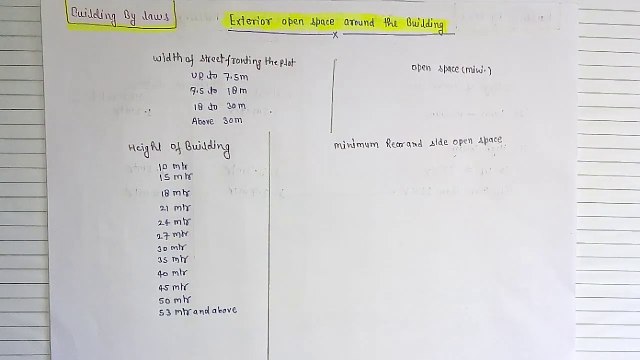 Building By laws
Exterior open space around the Building
width of street fronting the plot
open space (min.)
UP to 7.5m
7.5 to 18m
18 to 30m
Above 30m
Height of Building
minimum Rear and side open space
10 mtr
15 mtr
18 mtr
21 mtr
24 mtr
27 mtr
30 mtr
35 mtr
40 mtr
45 mtr
50 mtr
53 mtr and above